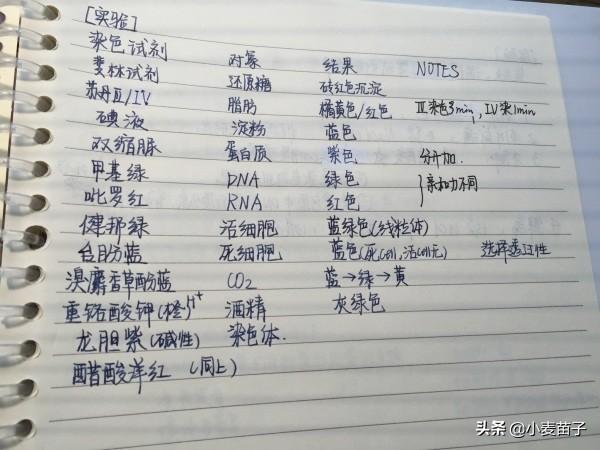 [实验]
染色试剂 对象 结果 NOTES
斐林试剂 还原糖 砖红色沉淀
苏丹III/IV 脂肪 橘黄色/红色 III染色3min, IV染1min
碘液 淀粉 蓝色
双缩脲 蛋白质 紫色 分开加.
甲基绿 DNA 绿色 }亲和力不同
吡罗红 RNA 红色
健那绿 活细胞 蓝绿色(线粒体)
台盼蓝 死细胞 蓝色(死cell,活cell无) 选择透过性
溴麝香草酚蓝 CO₂ 蓝→绿→黄
重铬酸钾(橙)H⁺ 酒精 灰绿色
龙胆紫(碱性) 染色体.
醋酸洋红 (同上)
头条 @小麦苗子